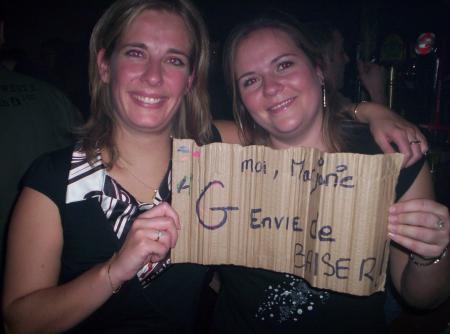 moi, Marjorie
G ENVIE de
BAISER!